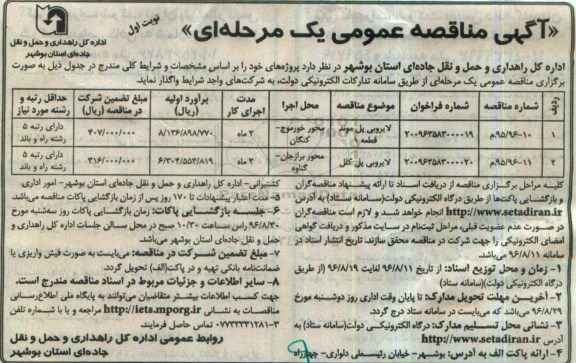 «آگهی مناقصه عمومی یک مرحله‌ای»
نوبت اول
اداره کل راهداری و حمل و نقل
جاده‌ای استان بوشهر
اداره کل راهداری و حمل و نقل جاده‌ای استان بوشهر در نظر دارد پروژه‌های خود را بر اساس مشخصات و شرایط کلی مندرج در جدول ذیل به صورت
برگزاری مناقصه عمومی یک مرحله‌ای از طریق سامانه تدارکات الکترونیکی دولت، به شرکت‌های واجد شرایط واگذار نماید.
ردیف | شماره مناقصه | شماره فراخوان | موضوع مناقصه | محل اجرا | مدت اجرای کار | برآورد اولیه (ریال) | مبلغ تضمین شرکت در مناقصه (ریال) | حداقل رتبه و رشته مورد نیاز
۱ | ۹۵/۹۶-۱۰.م | ۲۰۰۹۶۳۵۸۳۰۰۰۰۱۹ | لایروبی پل موند قطعه | محور خورموج- کنگان | ۲ ماه | ۸/۱۳۶/۸۹۸/۷۷۰ | ۴۰۷/۰۰۰/۰۰۰ | دارای رتبه ۵ رشته راه و باند
۲ | ۹۵/۹۶-۱۱.م | ۲۰۰۹۶۳۵۸۳۰۰۰۰۲۰ | لایروبی پل کلل | محور برازجان- گناوه | ۲ ماه | ۶/۳۰۴/۵۵۲/۸۱۹ | ۳۱۶/۰۰۰/۰۰۰ | دارای رتبه ۵ رشته راه و باند
کلیه مراحل برگزاری مناقصه از دریافت اسناد تا ارائه پیشنهاد مناقصه‌گران
و بازگشایی پاکت‌ها از طریق درگاه الکترونیکی دولت(سامانه ستاد) به آدرس
http://www.setadiran.ir انجام خواهد شد و لازم است مناقصه‌گران
در صورت عدم عضویت قبلی، مراحل ثبت‌نام در سایت مذکور و دریافت گواهی
امضای الکترونیکی را جهت شرکت در مناقصه محقق سازند. تاریخ انتشار اسناد در
سامانه ۹۶/۸/۱۱ می‌باشد.
۱- زمان و محل توزیع اسناد: از تاریخ ۹۶/۸/۱۱ لغایت ۹۶/۸/۱۹ (از طریق
درگاه الکترونیکی دولت)(سامانه ستاد)
۲- آخرین مهلت تحویل مدارک: تا پایان وقت اداری روز دوشنبه مورخ
۹۶/۸/۲۹ می‌باشد که می‌بایست در سامانه ستاد درج گردد.
۳- نشانی محل تسلیم مدارک: درگاه الکترونیکی دولت(سامانه ستاد) به
آدرس http://www.setadiran.ir
۴- ارائه پاکت الف به آدرس: بوشهر- خیابان رئیسعلی دلواری- چهارراه
کشتیرانی- اداره کل راهداری و حمل و نقل جاده‌ای استان بوشهر- امور اداری
۵- مدت اعتبار پیشنهادات تا ۱۷۰ روز پس از زمان بازگشایی پاکات مناقصه می‌باشد.
۶- جلسه بازگشایی پاکات: زمان بازگشایی پاکات روز سه‌شنبه مورخ
۹۶/۸/۳۰ راس ساعت ۱۰/۳۰ صبح در محل سالن جلسات اداره کل راهداری و
حمل و نقل جاده‌ای استان بوشهر می‌باشد.
۷- مبلغ تضمین شرکت در مناقصه: می‌بایست به صورت فیش واریزی یا
ضمانت‌نامه بانکی تهیه و در پاکت(الف) تحویل گردد.
۸- سایر اطلاعات و جزئیات مربوط در اسناد مناقصه مندرج است.
جهت کسب اطلاعات بیشتر متقاضیان می‌توانند به پایگاه ملی اطلاع‌رسانی
مناقصات به نشانی http://iets.mporg.ir مراجعه و یا با شماره تلفن
۰۷۷۳۳۳۳۱۲۸۱-۳ تماس حاصل فرمایند.
روابط عمومی اداره کل راهداری و حمل و نقل
جاده‌ای استان بوشهر